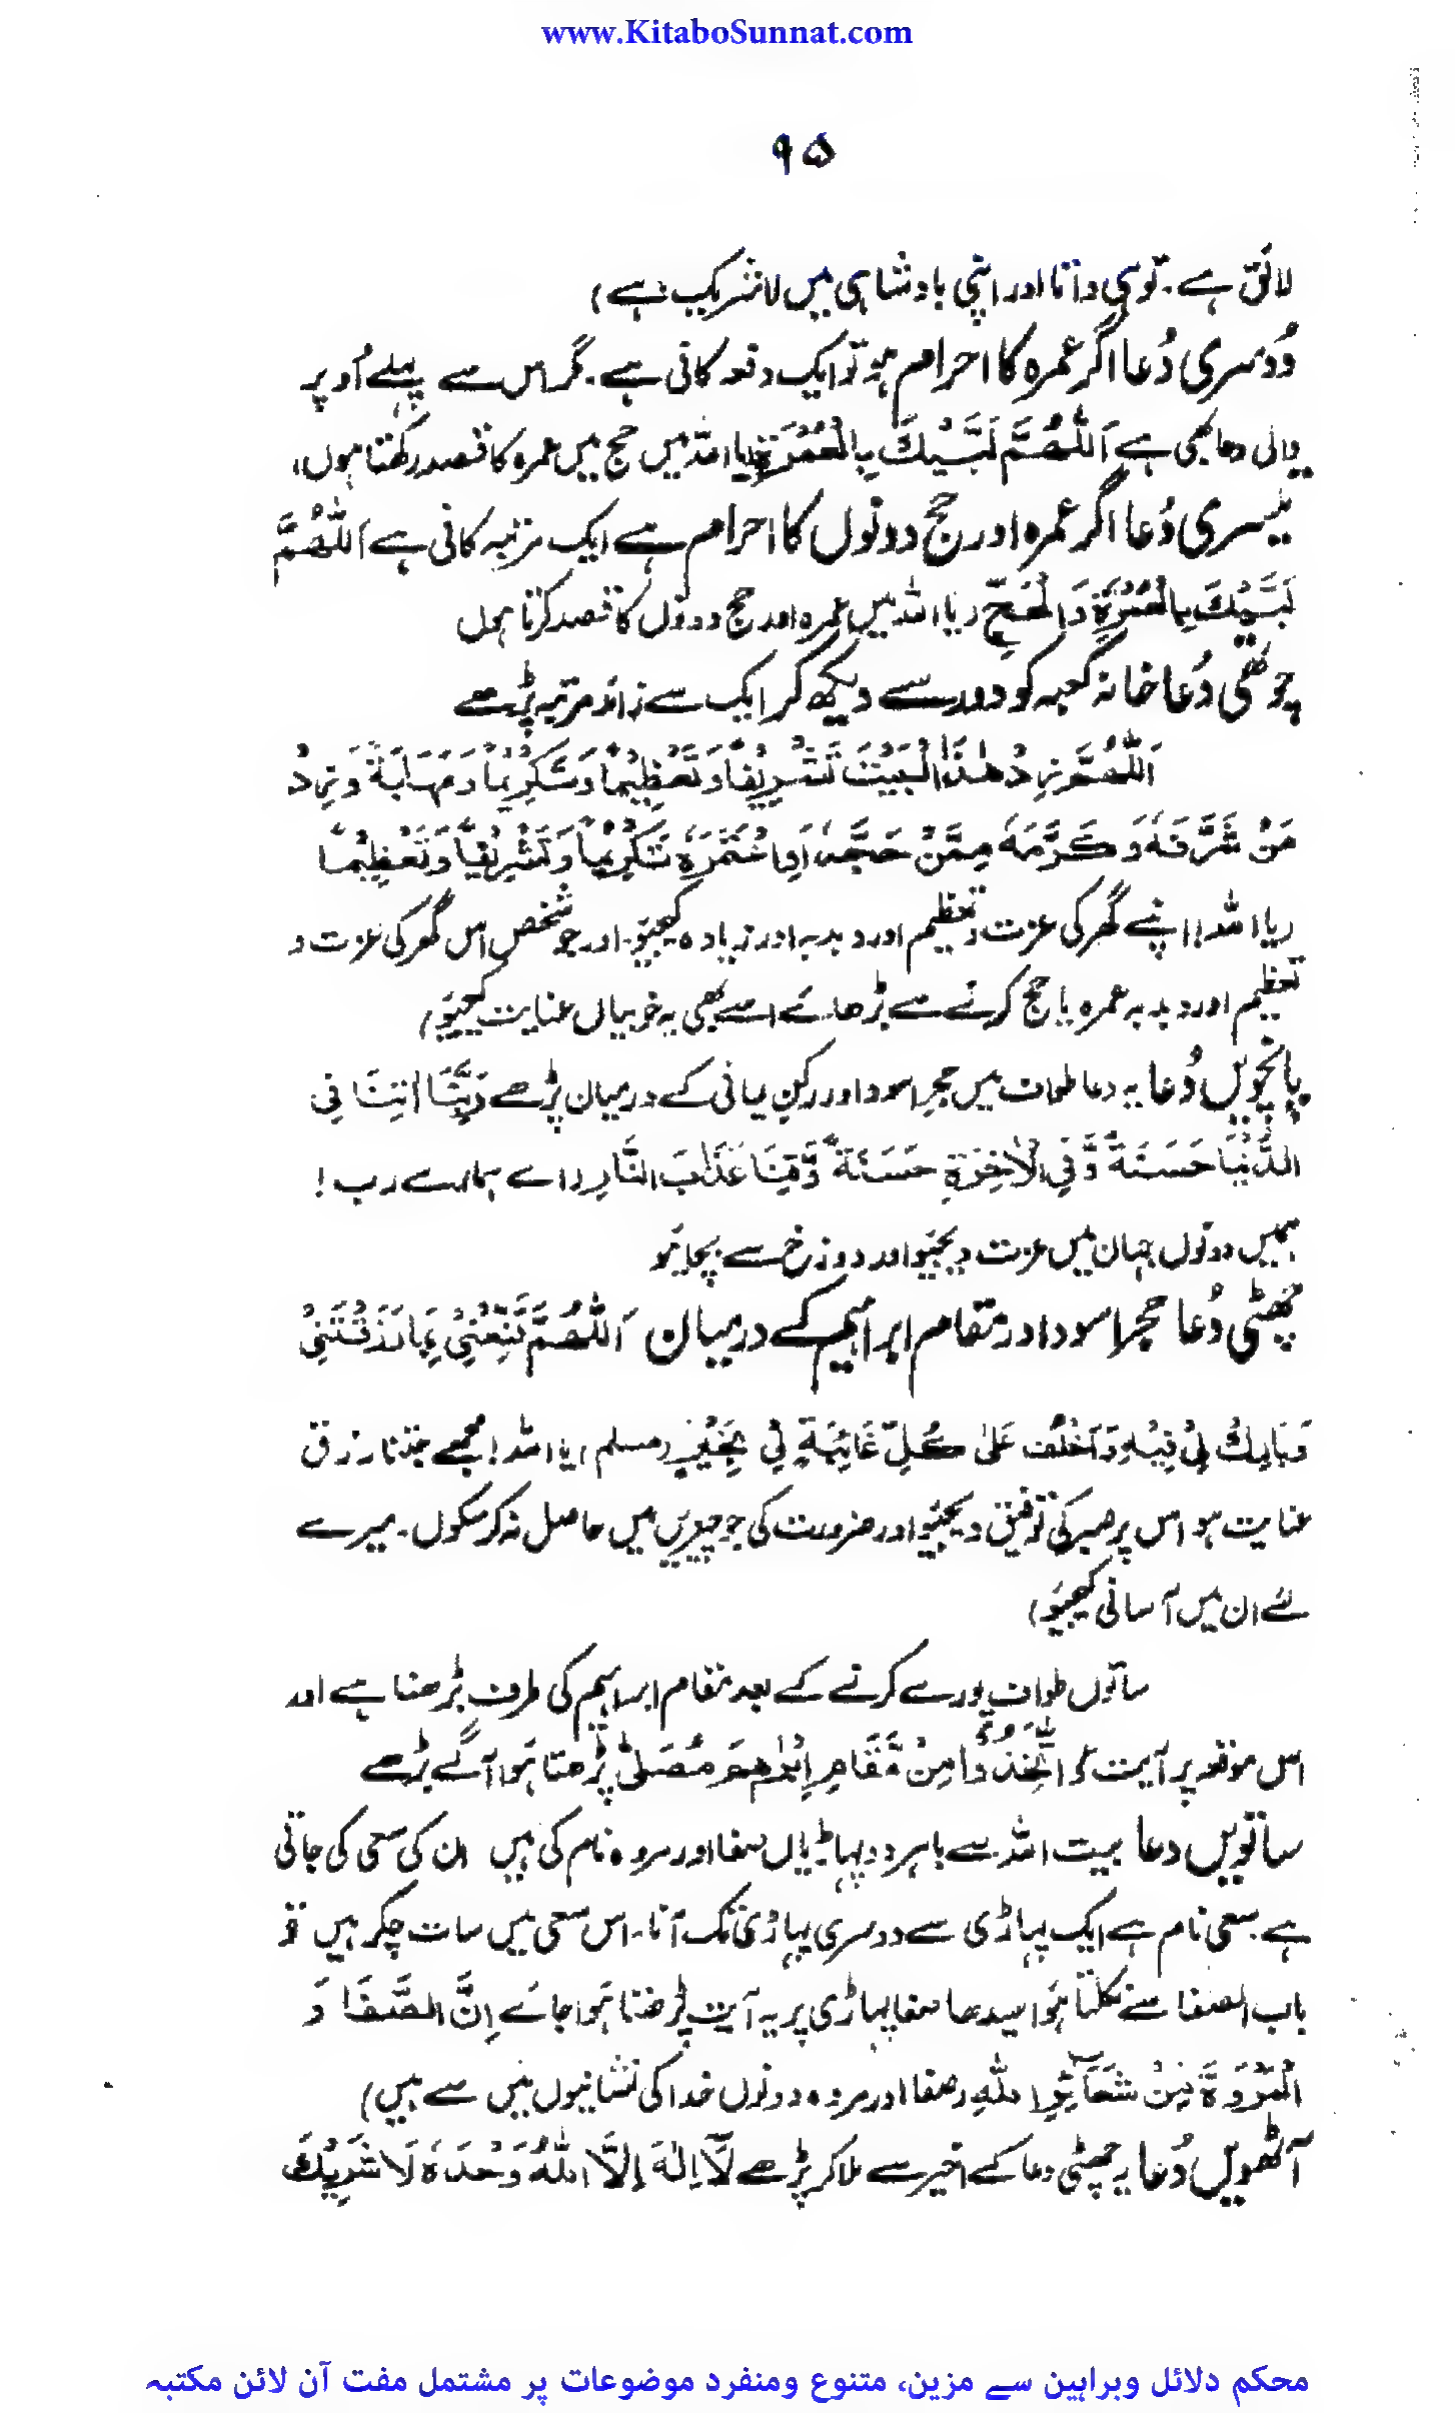 www.KitaboSunnat.com
۹۵
لائق ہے۔ تو ہی داتا اور اپنی بادشاہی میں لاشریک ہے)
دُوسری دُعا اگر عمرہ کا احرام ہو تو ایک دفعہ کافی ہے۔ گر اس سے پہلے اُوپر
والی دعا بھی ہے اَللّٰهُمَّ لَبَّيْكَ بِالْعُمْرَةِ یا اللہ میں حج میں عمرہ کا قصد رکھتا ہوں،
تیسری دُعا اگر عمرہ اور حج دونوں کا احرام ہے ایک مرتبہ کافی ہے اَللّٰهُمَّ
لَبَّيْكَ بِالْعُمْرَةِ وَالْحَجِّ (یا اللہ میں عمرہ اور حج دونوں کا قصد کرتا ہوں
چوتھی دُعا خانہ کعبہ کو دور سے دیکھ کر ایک سے زائد مرتبہ پڑھے
اَللّٰهُمَّ زِدْ هٰذَا الْبَيْتَ تَشْرِيْفًا وَتَعْظِيْمًا وَتَكْرِيْمًا وَمَهَابَةً وَزِدْ
مَنْ شَرَّفَهٗ وَكَرَّمَهٗ مِمَّنْ حَجَّهٗ اَوِاعْتَمَرَهٗ تَكْرِيْمًا وَتَشْرِيْفًا وَتَعْظِيْمًا
(یا اللہ! اپنے گھر کی عزت و تعظیم اور دبدبہ اور زیادہ کیجیو۔ اور جو شخص اس گھر کی عزت و
تعظیم اور دبدبہ عمرہ یا حج کرنے سے بڑھائے اسے بھی یہ خوبیاں عنایت کیجیو)
پانچویں دُعا یہ دعا طواف میں حجرِ اسود اور رکنِ یمانی کے درمیان پڑھے رَبَّنَا اٰتِنَا فِی
الدُّنْيَا حَسَنَةً وَّفِی الْاٰخِرَةِ حَسَنَةً وَّقِنَا عَذَابَ النَّارِ (اے ہمارے رب!
ہمیں دونوں جہان میں عزت دیجیو اور دوزخ سے بچائیو
چھٹی دُعا حجر اسود اور مقام ابراہیم کے درمیان اَللّٰهُمَّ قَنِّعْنِیْ بِمَا رَزَقْتَنِیْ
وَبَارِكْ لِیْ فِيْهِ وَاخْلُفْ عَلٰی كُلِّ غَائِبَةٍ لِّیْ بِخَيْرٍ (مسلم) (یا اللہ! مجھے جتنا رزق
عنایت ہو اس پر صبر کی توفیق دیجیو اور ضرورت کی جو چیزیں میں حاصل نہ کر سکوں۔ میرے
لئے ان میں آسانی کیجیو)
ساتوں طواف پورے کرنے کے بعد مقام ابراہیم کی طرف بڑھنا ہے اور
اس موقعہ پر آیت وَاتَّخِذُوْا مِنْ مَّقَامِ اِبْرٰهِمَ مُصَلًّی پڑھتا ہوا آگے بڑھے
ساتویں دعا بیت اللہ سے باہر دو پہاڑیاں صفا اور مروہ نام کی ہیں ان کی سعی کی جاتی
ہے سعی نام ہے ایک پہاڑی سے دوسری پہاڑی تک آنا۔ اس سعی میں سات چکر ہیں تو
باب الصفا سے نکلتا ہوا سیدھا صفا پہاڑی پر یہ آیت پڑھتا ہوا جائے اِنَّ الصَّفَا وَ
الْمَرْوَةَ مِنْ شَعَآئِرِ اللّٰهِ (صفا اور مروہ دونوں خدا کی نشانیوں میں سے ہیں)
آٹھویں دُعا یہ چھٹی دعا کے اخیر سے ملا کر پڑھے لَآ اِلٰهَ اِلَّا اللّٰهُ وَحْدَهٗ لَا شَرِيْكَ
محکم دلائل وبراہین سے مزین، متنوع ومنفرد موضوعات پر مشتمل مفت آن لائن مکتبہ